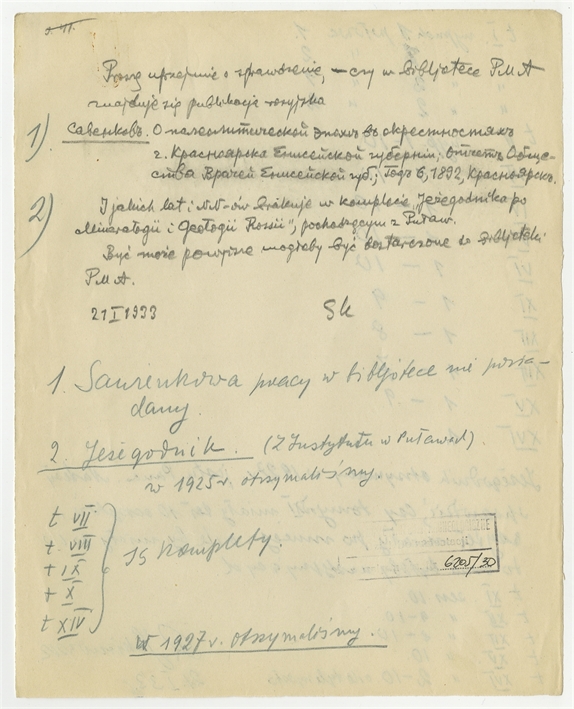 Proszę uprzejmie o sprawdzenie, – czy w Bibljotece PMA
znajduje się publikacja rosyjska
1) Савенковъ. О палеолитической эпохѣ въ окрестностяхъ
г. Красноярска Енисейской губерніи; отчетъ Обще-
ства Врачей Енисейской губ.; годъ 6, 1892, Красноярск.
2) I jakich lat i N.N-ów brakuje w komplecie „Jeżegodnika po
Mineralogii i Geologii Rossii", pochodzącym z Puław.
Być może powyższe mogłoby być dostarczone do Bibljoteki
PMA.
21 I 1933 Sk
1. Sawienkowa pracy w bibljotece nie posia-
damy.
2. Jeżegodnik. (Z Instytutu w Puławach).
w 1925 r. otrzymaliśmy.
t VII
t. VIII
t IX
t X
t XIV
są komplety.
6205/30
w 1927 r. otrzymaliśmy.